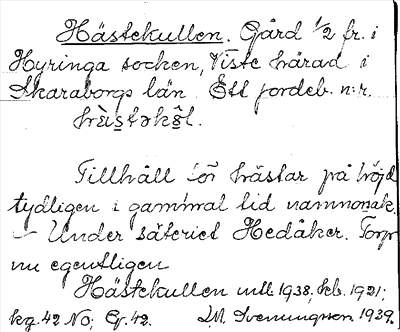 Hästekullen. Gård 1/2 fr. i
Hyringa socken, Viste härad i
Skaraborgs län. Ett jordeb. n:r.
Tillhåll för hästar på höjd
tydligen i gammal tid namnorsak.
– Under säteriet Hedåker. Torp
nu egentligen
Hästekullen utt. 1938; kb. 1921;
kg. 42 NO; Gr. 42. D.A. Svenungson 1939.